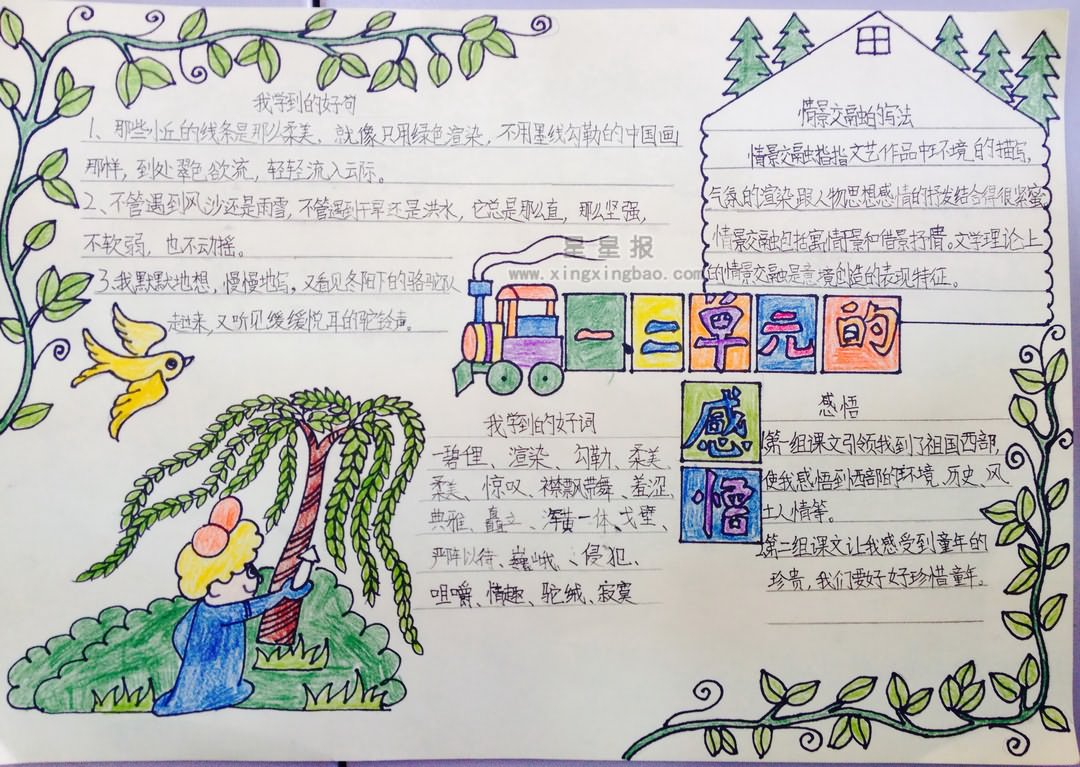 我学到的好句
1、那些小丘的线条是那么柔美，就像只用绿色渲染，不用墨线勾勒的中国画
那样，到处翠色欲流，轻轻流入云际。
2、不管遇到风沙还是雨雪，不管遇到干旱还是洪水，它总是那么直，那么坚强，
不软弱，也不动摇。
3、我默默地想，慢慢地写，又看见冬阳下的骆驼队
走过来，又听见缓缓悦耳的驼铃声。
情景交融的写法
情景交融指指文艺作品中环境的描写，
气氛的渲染跟人物思想感情的抒发结合得很紧蜜
情景交融的括寓情于景和借景抒情。文学理论上
的情景交融是意境创造的表现特征。
星星报
www.xingxingbao.com
一、二单元的
感
悟
我学到的好词
碧俚、渲染、勾勒、柔美、
柔美、惊叹、襟飘带舞、羞涩、
典雅、矗立、浑黄一体、戈壁、
严阵以待、巍峨、、侵犯、
咀嚼、情趣、驼绒、寂寞
感悟
1第一组课文引领我到了祖国西部，
使我感悟到西部的环境、历史、风
土人情等。
2第二组课文让我感受到童年的
珍贵，我们要好好珍惜童年。